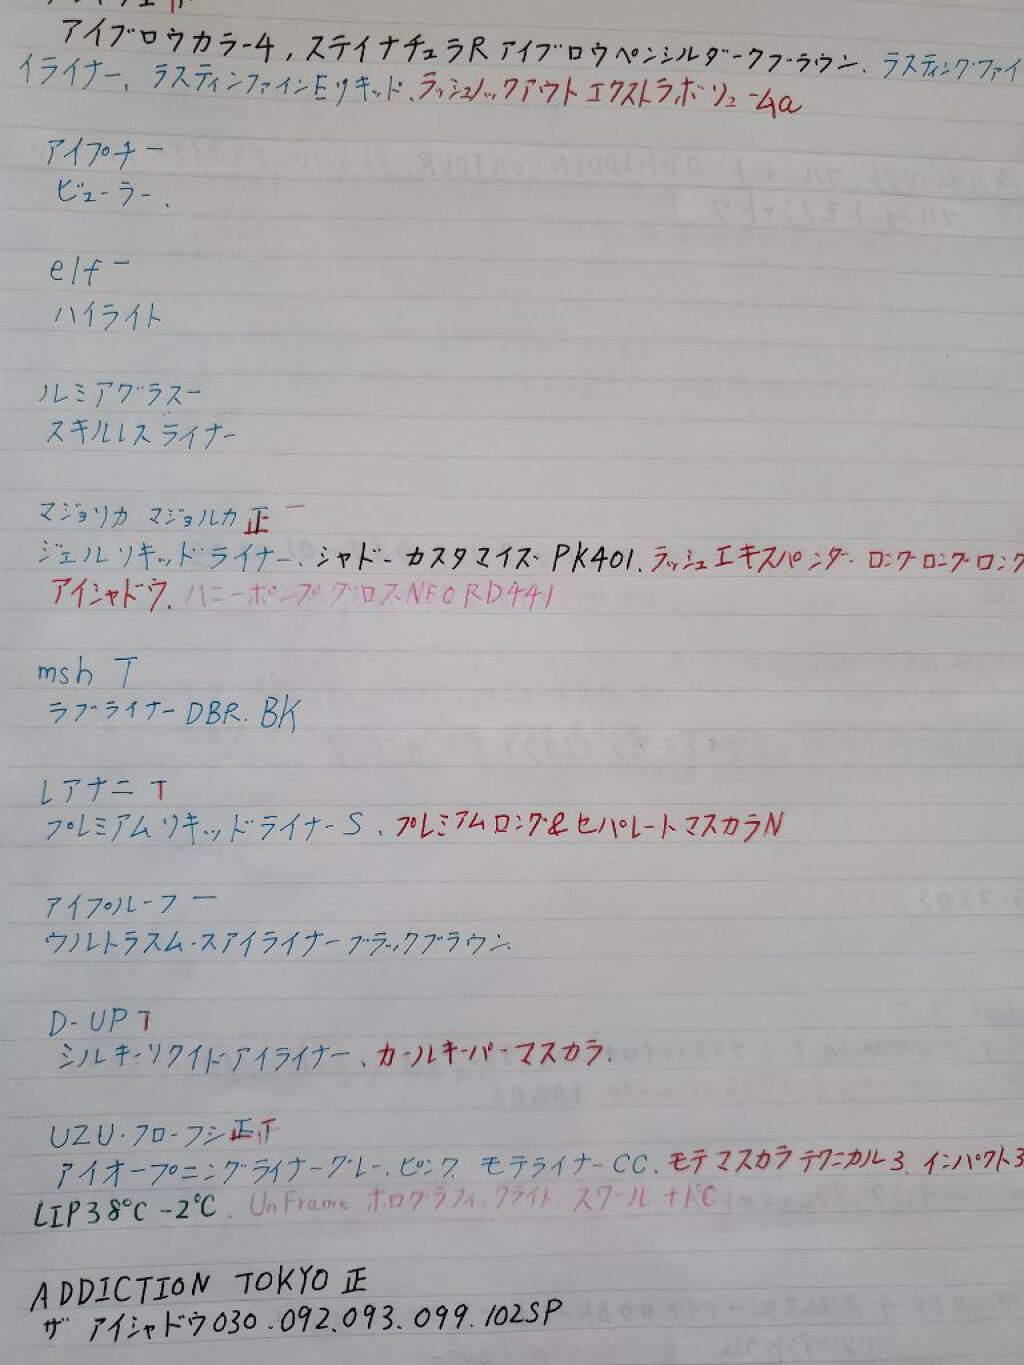 アイブロウカラー4，ステイナチュラR アイブロウペンシルダークブラウン、ラスティングファイ
イライナー、ラスティンファインEリキッド、ラッシュノックアウト エクストラボリューム a
アイプチ 一
ビューラー、
elf 一
ハイライト
ルミアグラス 一
スキルレスライナー
マジョリカ マジョルカ 正一
ジェルリキッドライナー、シャドーカスタマイズ PK401、ラッシュエキスパンダー ロングロングロング
アイシャドウ、ハニーポンプグロスNEO RD441
msh T
ラブライナー DBR、BK
レアナニ T
プレミアムリキッドライナーS、プレミアムロング&セパレートマスカラN
アイプルーフ 一
ウルトラスムースアイライナーブラックブラウン、
D-UP T
シルキーリクイドアイライナー、カールキーパーマスカラ、
UZU・フローフシ 正正
アイオープニングライナーグレー、ピンク モテライナーCC、モテマスカラテクニカル3、インパクト3
LIP38℃ -2℃、UnFrame ホログラフィ、クライト スワール +1℃
ADDICTION TOKYO 正
ザ アイシャドウ030、092、093、099、102SP